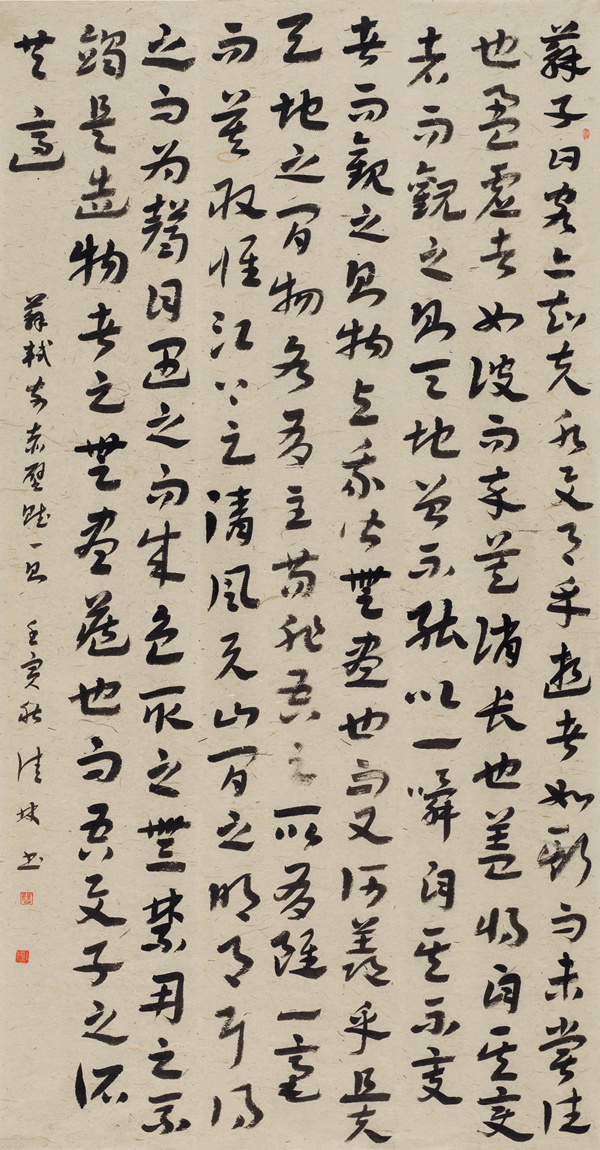 蘇子曰客亦知夫水與月乎逝者如斯而未嘗往
也盈虛者如彼而卒莫消長也蓋將自其變
者而觀之則天地曾不能以一瞬自其不變
者而觀之則物與我皆無盡也而又何羨乎且夫
天地之間物各有主苟非吾之所有雖一毫
而莫取惟江上之清風與山間之明月耳得
之而為聲目遇之而成色取之無禁用之不
竭是造物者之無盡藏也而吾與子之所
共適
蘇軾前赤壁賦一則 壬寅秋 書